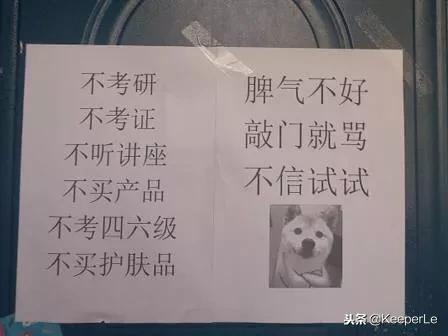 不考研
不考证
不听讲座
不买产品
不考四六级
不买护肤品
脾气不好
敲门就骂
不信试试
头条 @KeeperLe